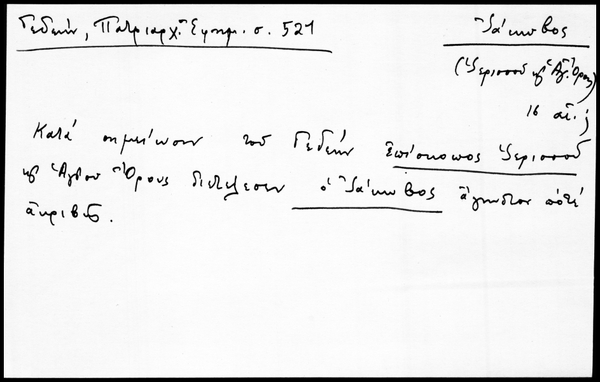 Γεδεών, Πατριαρχ. Ἐφημ. σ. 521
Ἰάκωβος
(Ἱερισσοῦ κ' Ἁγ. Ὄρους)
16 αἰ. ;
Κατά σημείωσιν τοῦ Γεδεών ἐπίσκοπος Ἱερισσοῦ
κ' Ἁγίου Ὄρους διετέλεσεν ὁ Ἰάκωβος ἄγνωστον πότε
ἀκριβῶς.